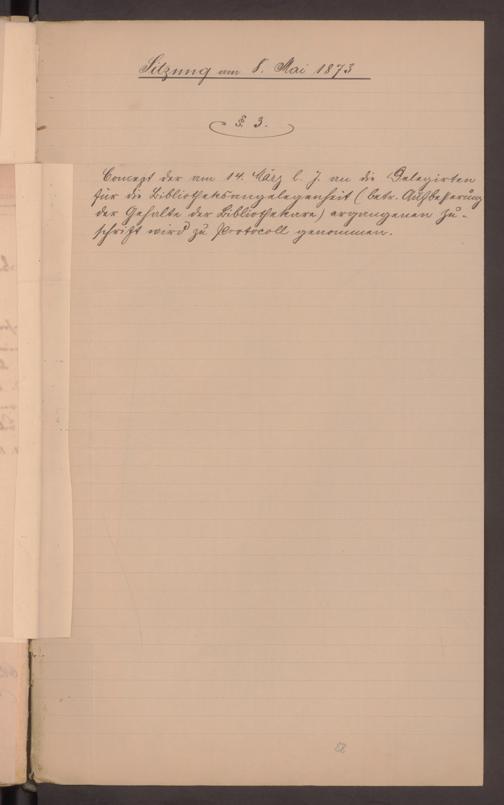 Sitzung am 8. Mai 1873
§. 3.
Concept der am 14. März l. J. an die Delegirten
für die Bibliotheksangelegenheit (betr. Aufbesserung
der Gehalte der Bibliothekare) ergangenen Zu-
schrift wird zu Protocoll genommen.